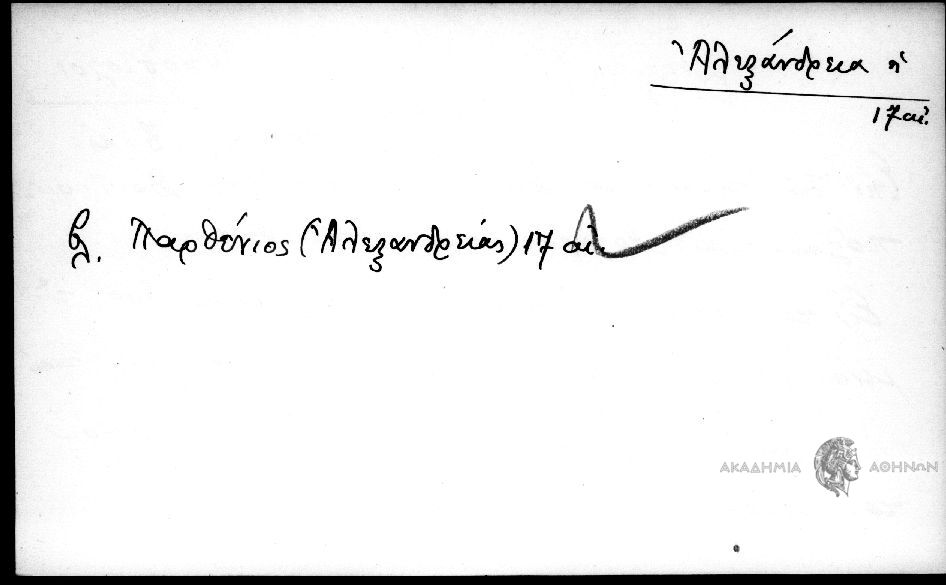 Ἀλεξάνδρεια ἡ
17 αἰ.
βλ. Παρθένιος (Ἀλεξανδρείας) 17 αἰ.
ΑΚΑΔΗΜΙΑ ΑΘΗΝΩΝ